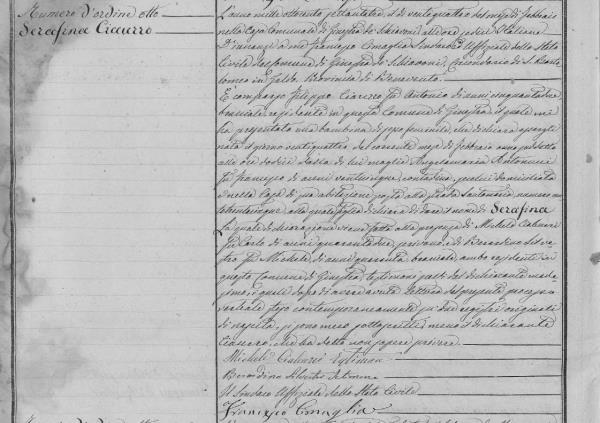 Numero d'ordine otto
Serafina Ciaurro
L'anno mille ottocento settantatre, il dì ventiquattro del mese di Febbraio
nella Casa Comunale di Ginestra de' Schiavoni, alle ore sedici Italiane
D'innanzi a me Francesco Conaglia Sindaco ed Uffiziale dello Stato
Civile del Comune di Ginestra de' Schiavoni, Circondario di S. Barto
lomeo in Galdo, Provincia di Benevento.
È comparso Filippo Ciaurro fu Antonio di anni cinquantatre
bracciale residente in questo Comune di Ginestra, il quale mi
ha presentato una bambina di sesso femminile, che dichiara essergli
nata il giorno ventiquattro del corrente mese di Febbraio anno suddetto
alle ore dodici dalla di lui moglie Angelamaria Antonucci
fu Francesco di anni ventisei, contadina, seco lui domiciliata
e nella Casa di sua abitazione posta alla Strada numero
alla quale figlia dichiara di dare il nome di Serafina
La quale dichiarazione viene fatta alla presenza di Michele Ciaburri
fu Carlo di anni quaranta due, e di Berardino Silves
tro fu Michele, di anni quaranta, bracciale, ambo residenti in
questo Comune di Ginestra, testimoni del dichiarante mede
simo, i quali dopo di avere avuta lettura del presente processo
verbale steso contemporaneamente su due registri originali
di nascita, si sono meco sottoscritti, meno il dichiarante
Ciaurro, che ha detto non sapere scrivere.
Michele Ciaburri testimone
Berardino Silvestro testimone
Il Sindaco Uffiziale dello Stato Civile
Francesco Conaglia